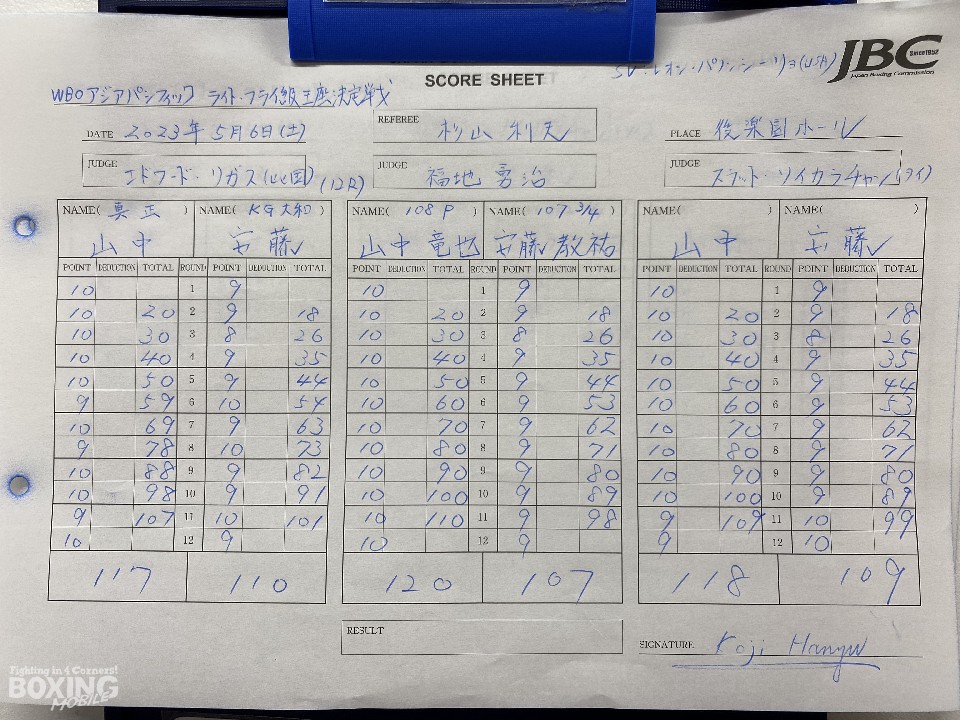 JBC Since1952
Japan Boxing Commission
SCORE SHEET
SV.レオン・パノンシーリョ(USA)
WBOアジアパシフィック ライト・フライ級王座決定戦
DATE 2023年5月6日(土)
REFEREE 杉山利夫
PLACE 後楽園ホール
JUDGE エドワード・リガス(比国)
(12R)
JUDGE 福地勇治
JUDGE スラット・ソイカラチャーン(タイ)
NAME( 真正 ) NAME( KG大和 ) NAME( 108 P ) NAME( 107 3/4 ) NAME( ) NAME( )
山中 安藤 山中竜也 安藤教祐 山中 安藤
POINT DEDUCTION TOTAL ROUND POINT DEDUCTION TOTAL POINT DEDUCTION TOTAL ROUND POINT DEDUCTION TOTAL POINT DEDUCTION TOTAL ROUND POINT DEDUCTION TOTAL
10 1 9 10 1 9 10 1 9
10 20 2 9 18 10 20 2 9 18 10 20 2 9 18
10 30 3 8 26 10 30 3 8 26 10 30 3 8 26
10 40 4 9 35 10 40 4 9 35 10 40 4 9 35
10 50 5 9 44 10 50 5 9 44 10 50 5 9 44
9 59 6 10 54 10 60 6 9 53 10 60 6 9 53
10 69 7 9 63 10 70 7 9 62 10 70 7 9 62
9 78 8 10 73 10 80 8 9 71 10 80 8 9 71
10 88 9 9 82 10 90 9 9 80 10 90 9 9 80
10 98 10 9 91 10 100 10 9 89 10 100 10 9 89
9 107 11 10 101 10 110 11 9 98 9 109 11 10 99
10 12 9 10 12 9 9 12 10
117 110 120 107 118 109
RESULT
SIGNATURE Koji Hanyu
Fighting in 4 Corners!
BOXING
MOBILE